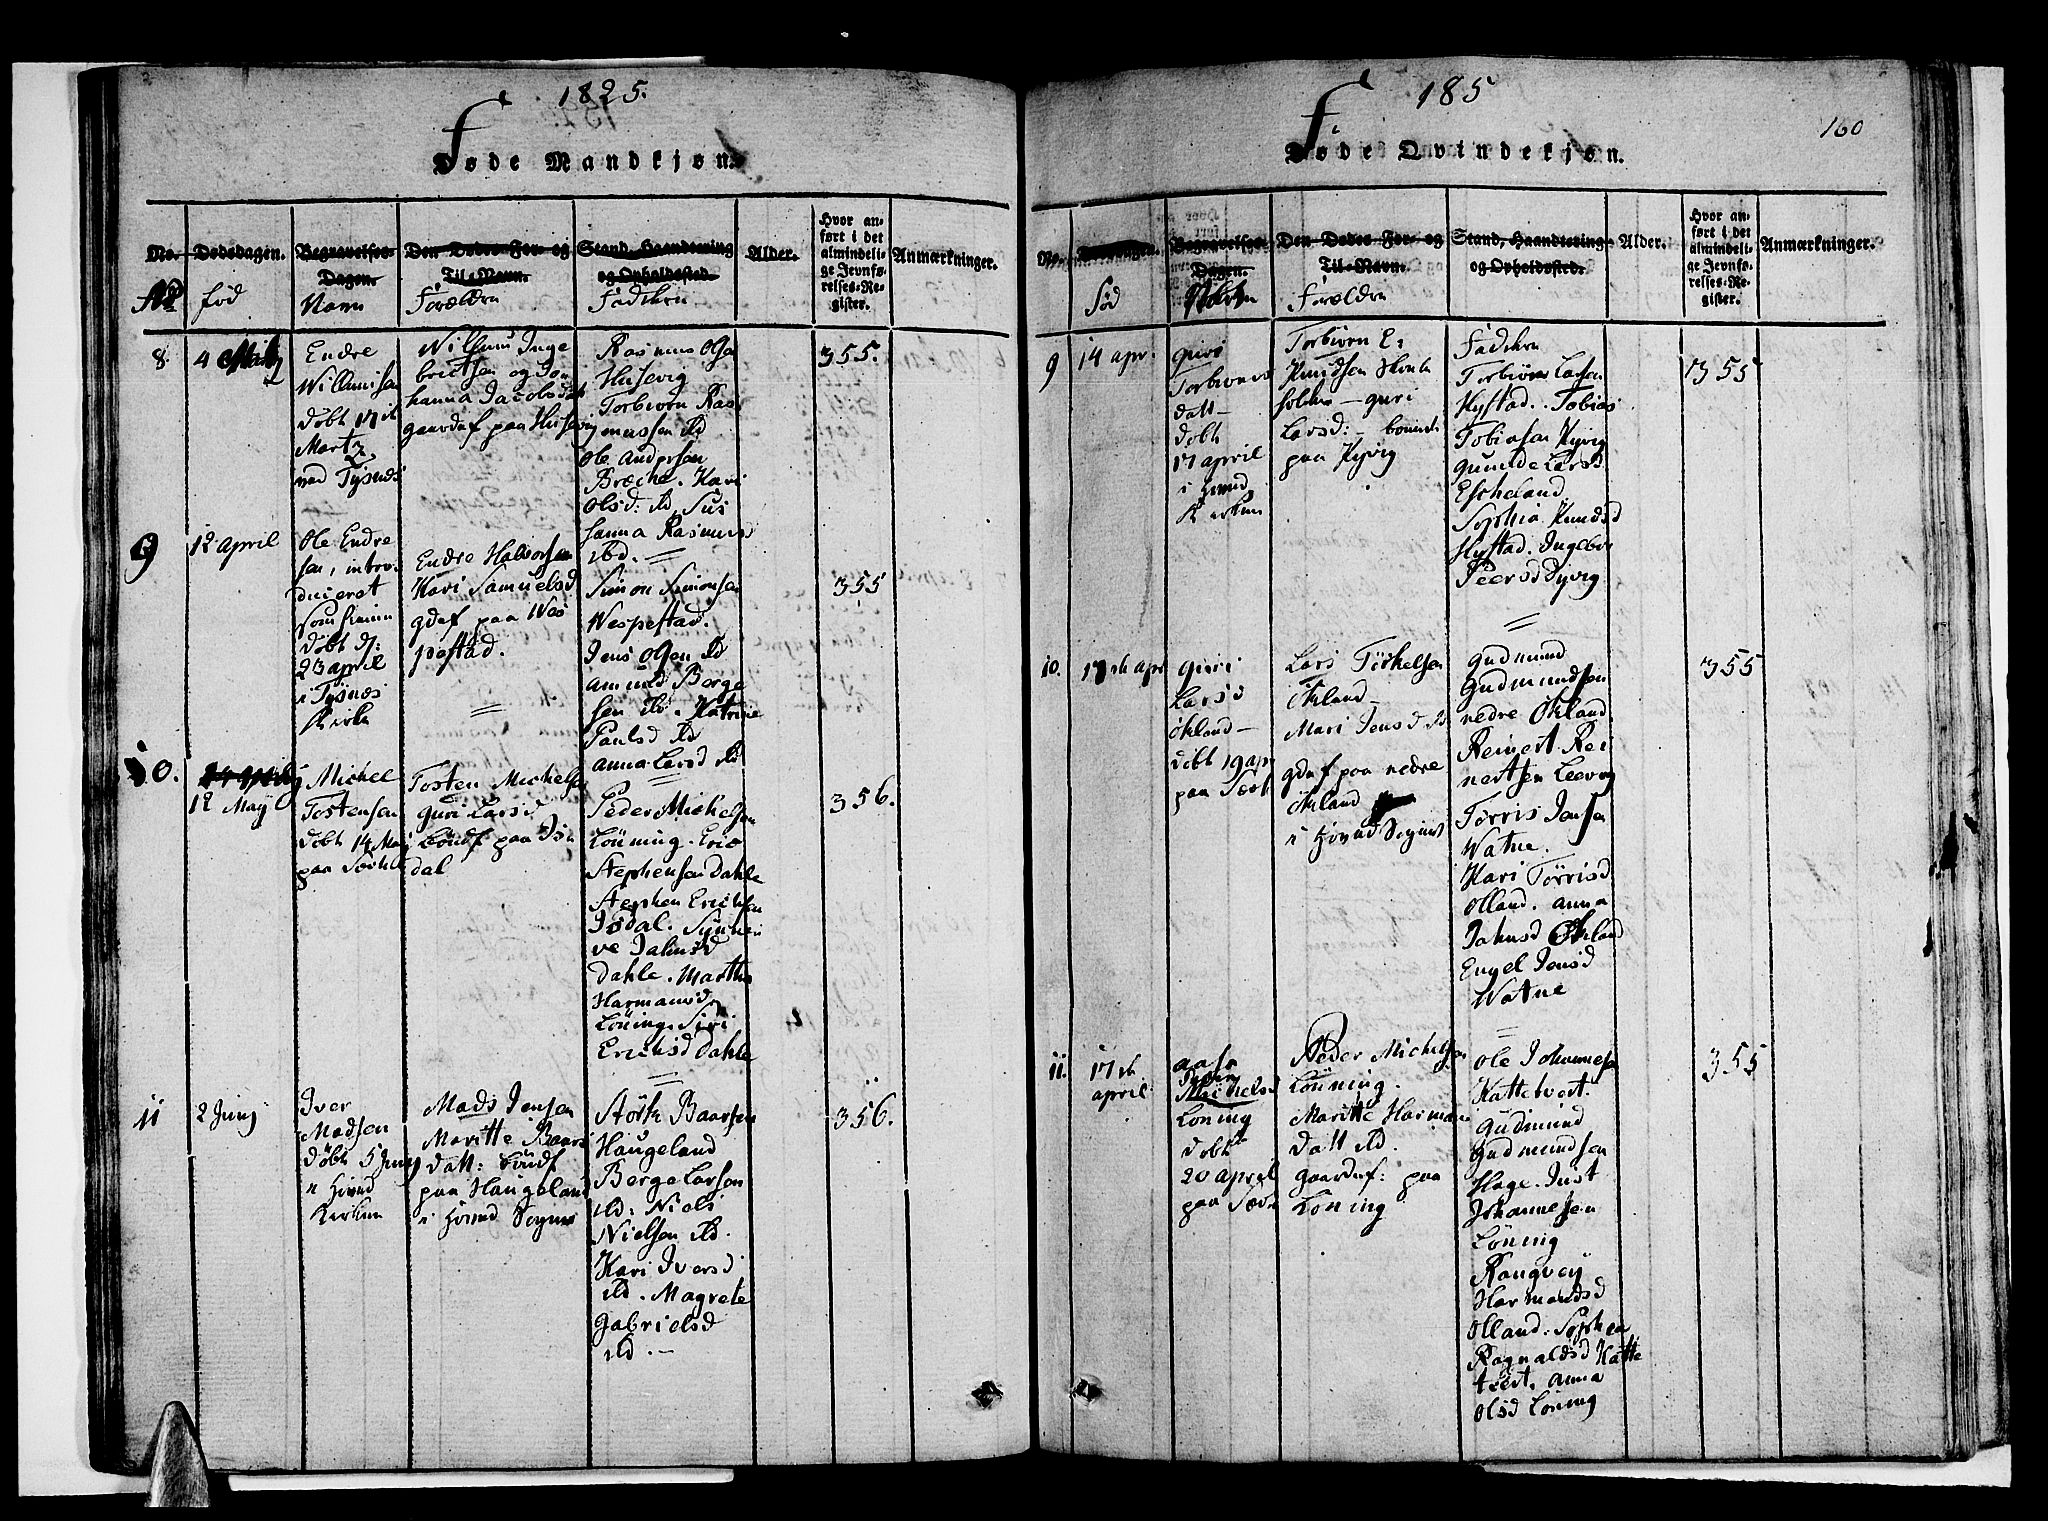 1825.
Føde Mandkjøn
No.
Dødsdagen.
Begravelses-
Dagen.
Den Dødes For- og
Til-Navn.
Stand, Haandtering
og Opholdssted.
Alder.
Hvor an-
ført i det
almindeli-
ge Jevnfø-
relses-Re-
gister.
Anmærkninger.
No
fød
Navn
Forældre
Faddere
8.
4 Martz
Endre
Willumsen
døbt 17d
Martz
ved Tysnes
Willum Inge
britsen og Jo
hanna Jacobsdat
gaardf paa Husevig
Rasmus Olsen
Husevig
Torbiørn Ras
mussen ibd
Ole Andersen
Bræche. Kari
Olsd: ibd, Sus
hanna Rasmusd
ibd.
355.
9
12 april
Ole Endre
sen, intro
duceret
døbt d:
23 april
i Tysnes
Kirke
Endre Halvorsen
Kari Samuelsd
gdf paa Wes
pestad.
Simon Simonsen
Wespestad.
Jens Olsen ibd
Amund Berge
sen ibd. Katrine
Paulsd ibd
Anna Larsd ibd
355
10.
12 Maij
Michel
Tostensen
døbt 14 Maj
paa
Tosten Michelsen
Guri Larsd
Bøndf paa Is
dal
Peder Michelsen
Løning. Eric
Stephensen Dahle
Stephen Ericksen
Isdal. Synne
ve Jahnsd
Dahle. Marthe
Harmansd
Løning. Siri
Ericksd Dahle
356.
11
2 Junij
Iver
Madsen
døbt 5 Junij
i Hoved
Kirken
Mads Jensen
Maritte Baars
datt: Bøndf
paa Haugeland
i Hoved Sognet
Størk Baarsen
Haugeland
Berge Larsen
ibd: Niels
Nielsen ibd.
Kari Iversd
ibd. Magrete
Gabrielsd
ibd.
356.
185
160
Føde Qvindekjøn.
No.
Begravelses-
Dagen.
Den Dødes For- og
Til-Navn.
Stand, Haandtering
og Opholdssted.
Alder.
Hvor an-
ført i det
almindeli-
ge Jevnfø-
relses-Re-
gister.
Anmærkninger.
Fød
Forældre
9
14 apr.
Guri
Torbiørns
datt
døbt
17 april
i Hoved
Kirken
Torbiørn
Knudsen
Guri
Larsd:
paa Hyvig
Faddere
Torbiørn Larsen
Hystad. Tobias
Tobiasen Hyvig
Gunilde Larsd
Escheland.
Sophia Knudsd
Hystad. Ingebor
Peersd Dyvig
355
10.
17de apr
Guri
Larsd
Økland
døbt 19 apr
paa
Lars Tørkelsen
Økland
Mari Jensd
gdf paa nedre
Økland
i Hoved Sognet
Gudmund
Gudmundsen
nedre Økland.
Reinert Rei
nertsen Leevig
Tørris Jensen
Watne.
Kari Tørrisd
Olland. Anna
Jahnsd Økland
Engel Jensd
Watne
355
11.
17de
april
Aase
Peder
Michelsd
Løning
døbt
20 april
paa
Peder Michelsen
Løning.
Maritte Harmans
datt ibd.
Gaardf: paa
Løning
Ole Johannesen
Kattetvert.
Gudmund
Gudmundsen
Hage. Just
Johannesen
Løning
Rangvey
Harmansd
Olland. Sophia
Ragnaldsd Katte
tvert. Anna
Olsd Løning
355